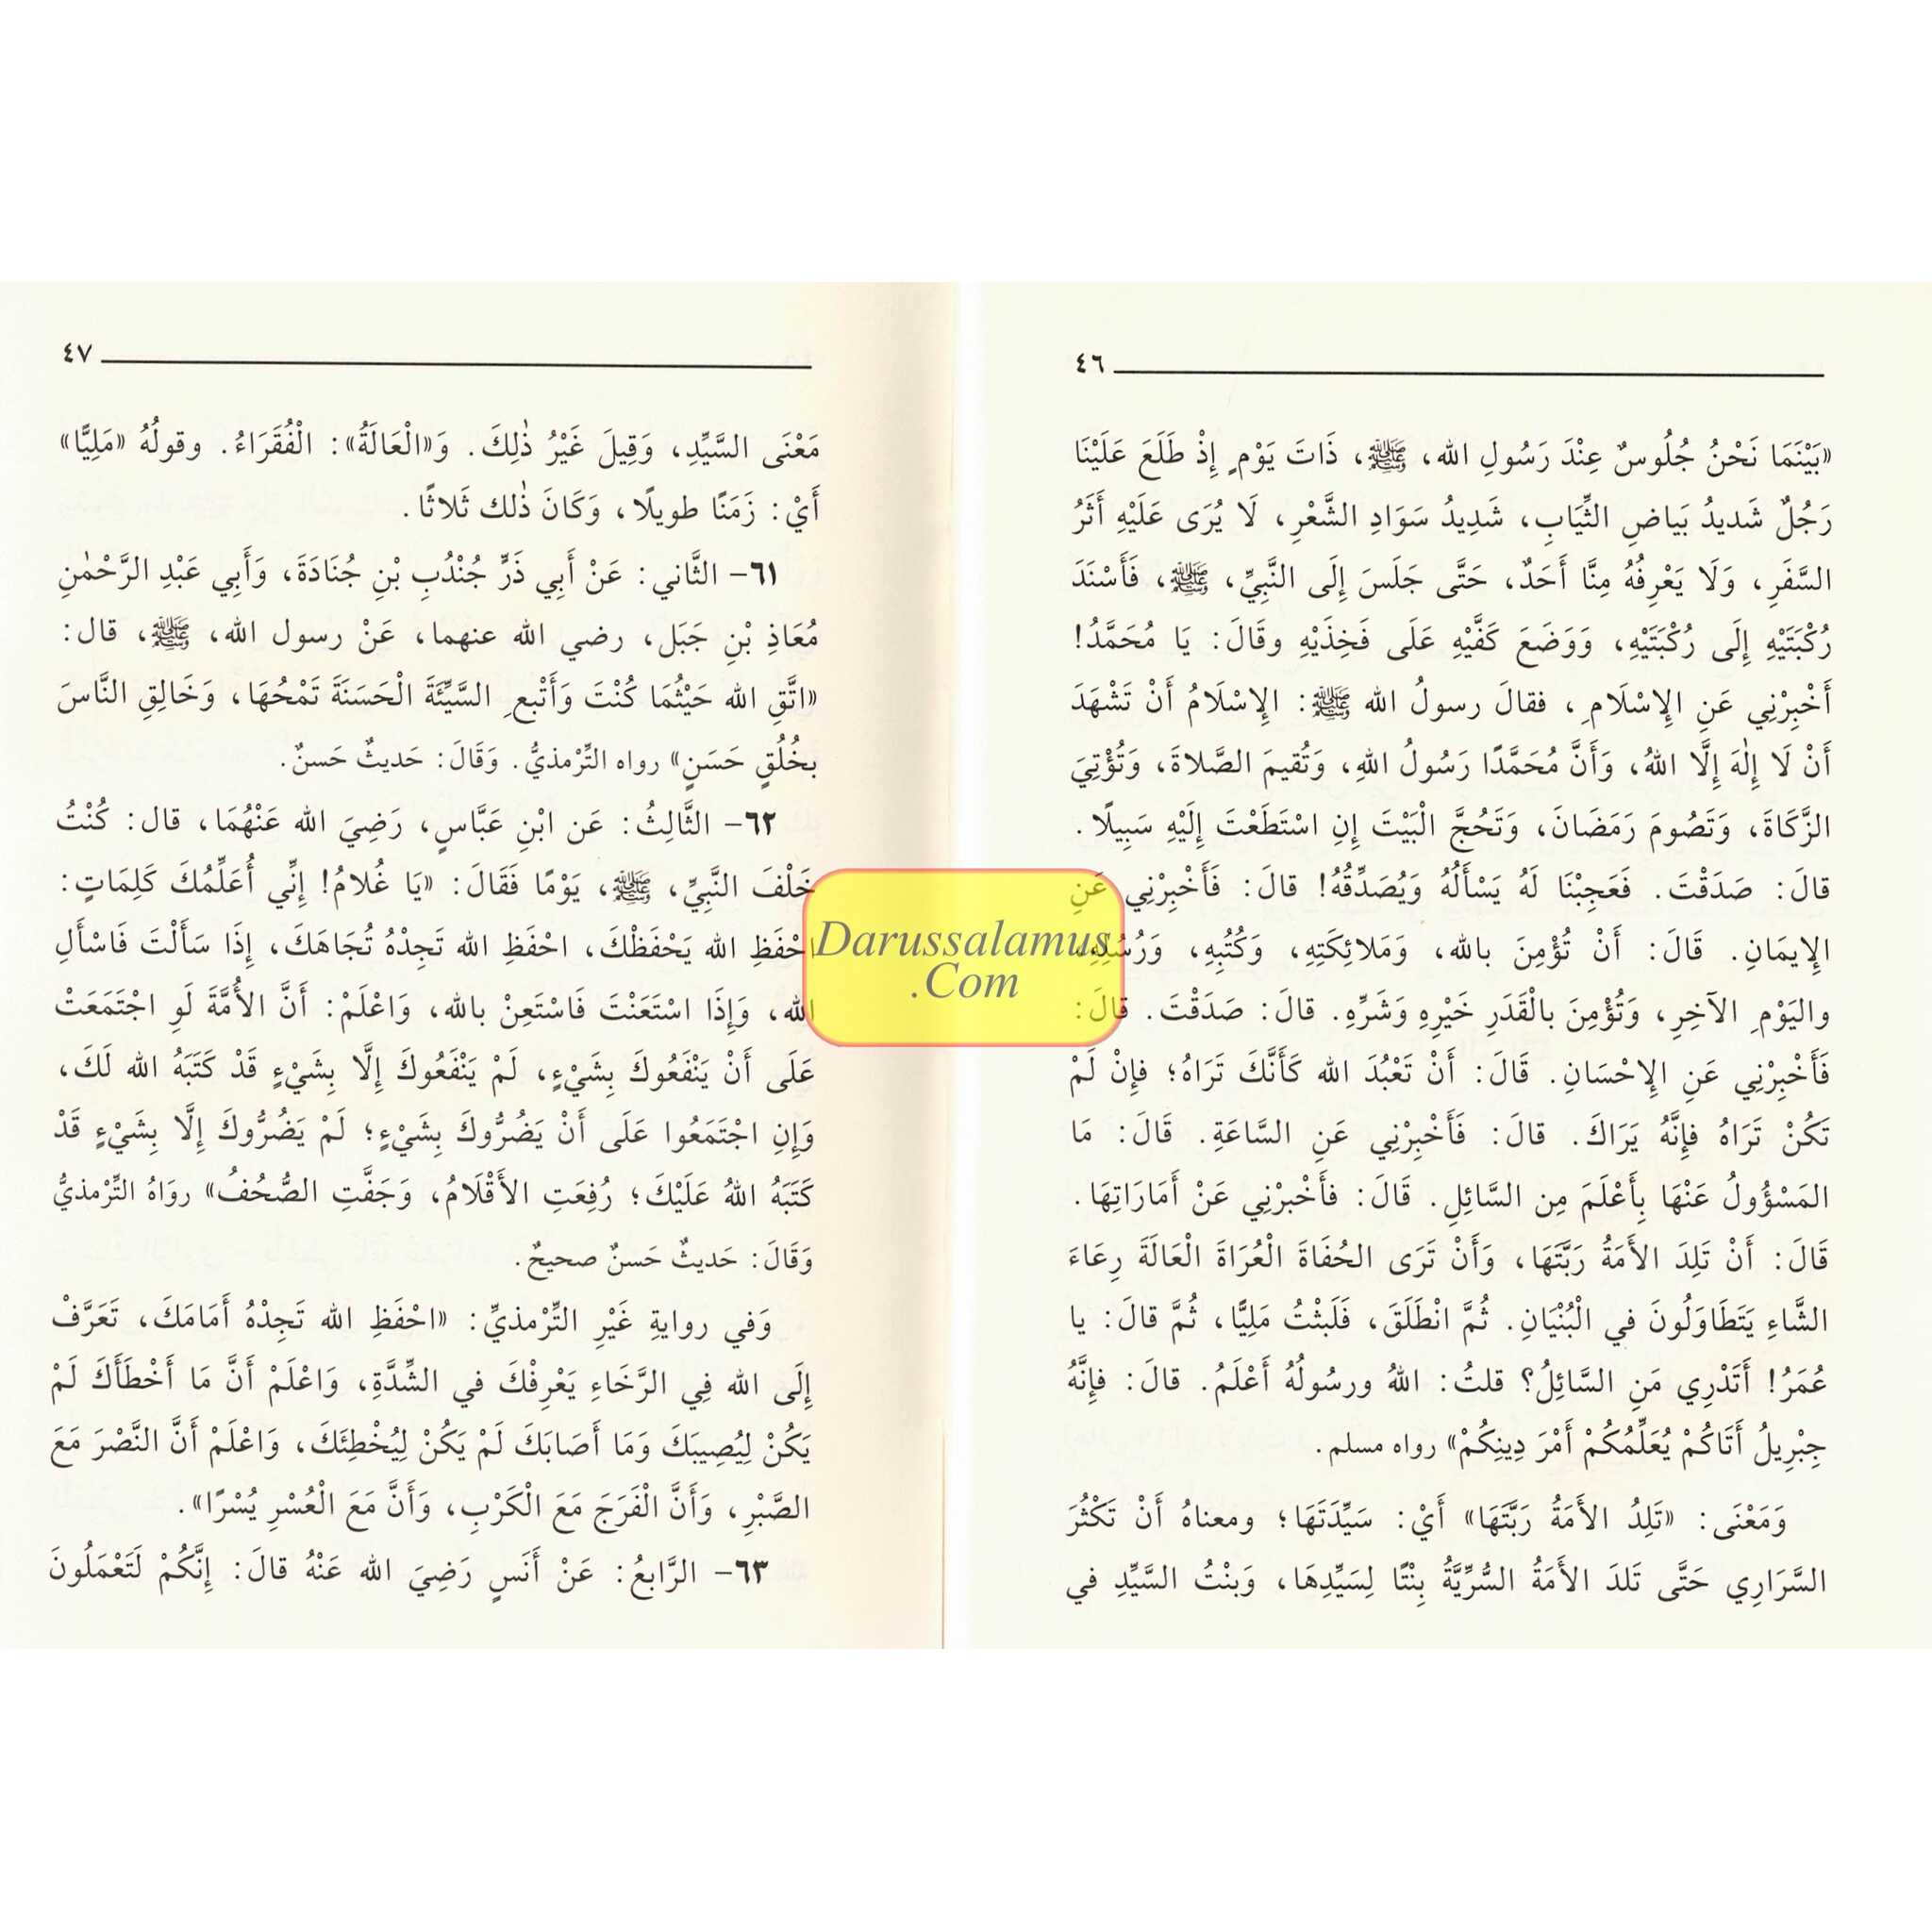 ٤٦
«بَيْنَمَا نَحْنُ جُلُوسٌ عِنْدَ رَسُولِ الله، ﷺ، ذَاتَ يَوْمٍ إِذْ طَلَعَ عَلَيْنَا
رَجُلٌ شَديدُ بَياضِ الثِّيَابِ، شَدِيدُ سَوَادِ الشَّعْرِ، لَا يُرَى عَلَيْهِ أَثَرُ
السَّفَرِ، وَلَا يَعْرِفُهُ مِنَّا أَحَدٌ، حَتَّى جَلَسَ إِلَى النَّبِيِّ، ﷺ، فَأَسْنَدَ
رُكْبَتَيْهِ إِلَى رُكْبَتَيْهِ، وَوَضَعَ كَفَّيْهِ عَلَى فَخِذَيْهِ وقَالَ: يَا مُحَمَّدُ!
أَخْبِرْنِي عَنِ الإِسْلَامِ، فقالَ رسولُ الله ﷺ: الإِسْلَامُ أَنْ تَشْهَدَ
أَنْ لَا إِلٰهَ إِلَّا اللهُ، وَأَنَّ مُحَمَّدًا رَسُولُ اللهِ، وَتُقيمَ الصَّلاةَ، وَتُؤْتِيَ
الزَّكَاةَ، وَتَصُومَ رَمَضَانَ، وَتَحُجَّ الْبَيْتَ إِنِ اسْتَطَعْتَ إِلَيْهِ سَبِيلًا.
قالَ: صَدَقْتَ. فَعَجِبْنَا لَهُ يَسْأَلُهُ وَيُصَدِّقُهُ! قالَ: فَأَخْبِرْنِي عَنِ
الإِيمَانِ. قَالَ: أَنْ تُؤْمِنَ بالله، وَمَلائِكَتِهِ، وَكُتُبِهِ، وَرُسُلِهِ،
واليَوْمِ الآخِرِ، وَتُؤْمِنَ بالْقَدَرِ خَيْرِهِ وَشَرِّهِ. قالَ: صَدَقْتَ. قالَ:
فَأَخْبِرْنِي عَنِ الإِحْسَانِ. قَالَ: أَنْ تَعْبُدَ الله كَأَنَّكَ تَرَاهُ؛ فإِنْ لَمْ
تَكُنْ تَرَاهُ فإِنَّهُ يَرَاكَ. قالَ: فَأَخْبِرْنِي عَنِ السَّاعَةِ. قَالَ: مَا
المَسْؤُولُ عَنْهَا بِأَعْلَمَ مِن السَّائِلِ. قَالَ: فأَخْبرْنِي عَنْ أَمَارَاتِهَا.
قَالَ: أَنْ تَلِدَ الأَمَةُ رَبَّتَهَا، وَأَنْ تَرَى الحُفَاةَ الْعُرَاةَ الْعَالَةَ رِعَاءَ
الشَّاءِ يَتَطَاوَلُونَ في الْبُنْيَانِ. ثُمَّ انْطَلَقَ، فَلَبثْتُ مَلِيًّا، ثُمَّ قالَ: يا
عُمَرُ! أَتَدْرِي مَنِ السَّائِلُ؟ قلتُ: اللهُ ورسُولُهُ أَعْلَمُ. قالَ: فإِنَّهُ
جِبْرِيلُ أَتَاكُمْ يُعَلِّمُكُمْ أَمْرَ دِينِكُمْ» رواه مسلم.
وَمَعْنَى: «تَلِدُ الأَمَةُ رَبَّتَهَا» أَيْ: سَيِّدَتَهَا؛ ومعناهُ أَنْ تَكْثُرَ
السَّرَارِي حَتَّى تَلدَ الأَمَةُ السُّرِّيَّةُ بِنْتًا لِسَيِّدِهَا، وَبنْتُ السَّيِّدِ في
٤٧
مَعْنَى السَّيِّدِ، وَقِيلَ غَيْرُ ذٰلِكَ. وَ«الْعَالَةُ»: الْفُقَرَاءُ. وقولُهُ «مَلِيًّا»
أَيْ: زَمَنًا طويلًا، وَكَانَ ذٰلك ثَلاثًا.
٦١– الثَّاني: عَنْ أَبي ذَرٍّ جُنْدُبِ بْنِ جُنَادَةَ، وَأَبي عَبْدِ الرَّحْمٰنِ
مُعَاذِ بْنِ جَبَل، رضي الله عنهما، عَنْ رسول الله، ﷺ، قال:
«اتَّقِ الله حَيْثُمَا كُنْتَ وَأَتْبعِ السَّيِّئَةَ الْحَسَنَةَ تَمْحُهَا، وَخَالِقِ النَّاسَ
بخُلُقٍ حَسَنٍ» رواه التِّرْمذيُّ. وَقَالَ: حَديثٌ حَسنٌ.
٦٢– الثَّالِثُ: عَن ابْنِ عَبَّاسٍ، رَضِيَ الله عَنْهُمَا، قال: كُنْتُ
خَلْفَ النَّبِيِّ، ﷺ، يَوْمًا فَقَالَ: «يَا غُلامُ! إِنِّي أُعَلِّمُكَ كَلِمَاتٍ:
احْفَظِ الله يَحْفَظْكَ، احْفَظِ الله تَجِدْهُ تُجَاهَكَ، إِذَا سَأَلْتَ فَاسْأَلِ
الله، وَإِذَا اسْتَعَنْتَ فَاسْتَعِنْ بالله، وَاعْلَمْ: أَنَّ الأُمَّةَ لَوِ اجْتَمَعَتْ
عَلَى أَنْ يَنْفَعُوكَ بِشَيْءٍ، لَمْ يَنْفَعُوكَ إِلَّا بِشَيْءٍ قَدْ كَتَبَهُ الله لَكَ،
وَإِنِ اجْتَمَعُوا عَلَى أَنْ يَضُرُّوكَ بِشَيْءٍ؛ لَمْ يَضُرُّوكَ إِلَّا بِشَيْءٍ قَدْ
كَتَبَهُ اللهُ عَلَيْكَ؛ رُفِعَتِ الأَقْلَامُ، وَجَفَّتِ الصُّحُفُ» روَاهُ التِّرْمذيُّ
وَقَالَ: حَديثٌ حَسنٌ صحيحٌ.
وَفي روايةِ غَيْرِ التِّرْمذيِّ: «احْفَظِ الله تَجِدْهُ أَمَامَكَ، تَعَرَّفْ
إِلَى الله فِي الرَّخَاءِ يَعْرِفْكَ في الشِّدَّةِ، وَاعْلَمْ أَنَّ مَا أَخْطَأَكَ لَمْ
يَكُنْ لِيُصِيبَكَ وَمَا أَصَابَكَ لَمْ يَكُنْ لِيُخْطِئَكَ، وَاعْلَمْ أَنَّ النَّصْرَ مَعَ
الصَّبْرِ، وَأَنَّ الْفَرَجَ مَعَ الْكَرْبِ، وَأَنَّ مَعَ الْعُسْرِ يُسْرًا».
٦٣– الرَّابعُ: عَنْ أَنَسٍ رَضِيَ الله عَنْهُ قالَ: إِنَّكُمْ لَتَعْمَلُونَ
Darussalamus
.Com